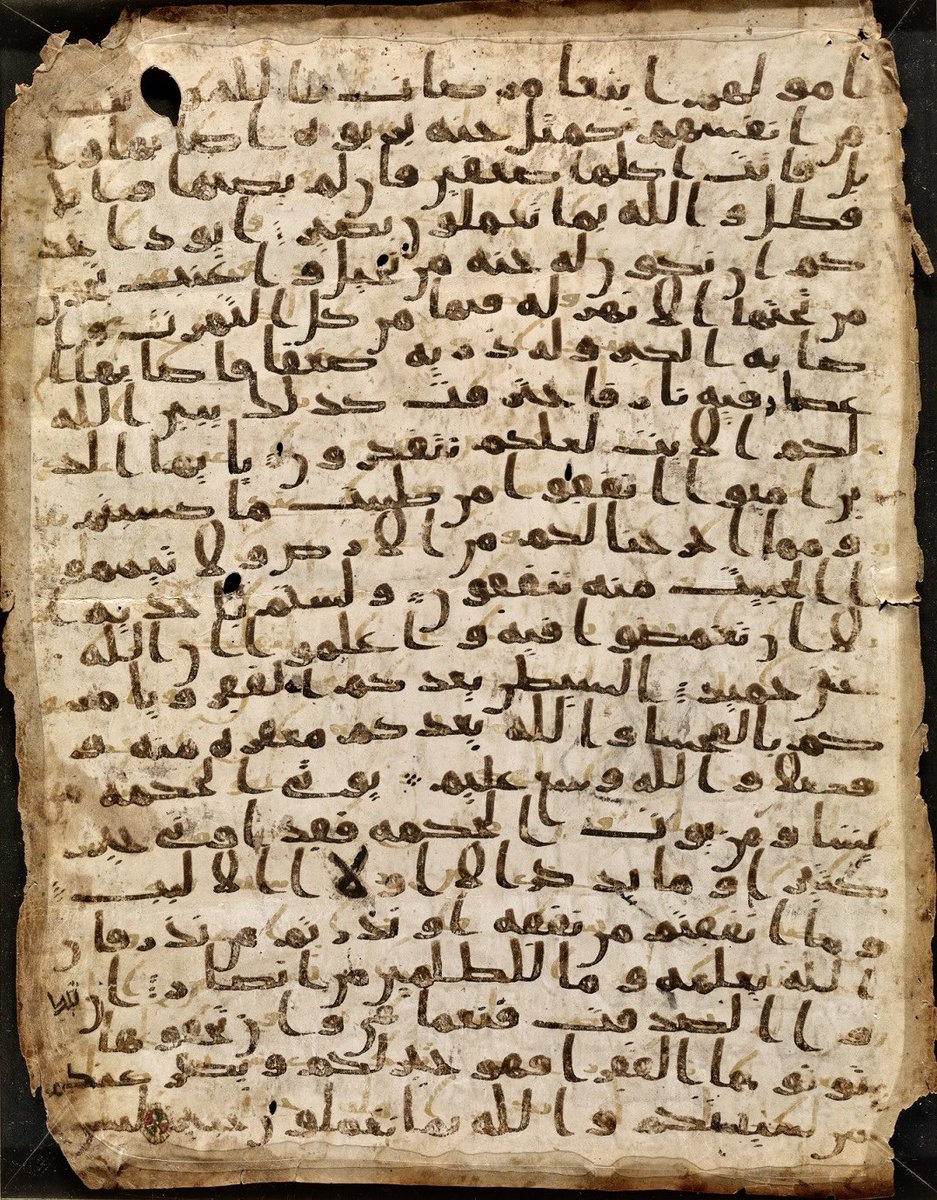 امولهم ابتغا مرضات الله
من انفسهم كمثل جنه بربوه اصابها وا
بل فاتت اكلها ضعفين فان لم يصبها وابل
فطل والله بما تعملون بصير ايود احد
كم ان تكون له جنه من نخيل واعنب تجري
من تحتها الانهر له فيها من كل الثمرت وا
صابه الكبر وله ذريه ضعفا فاصابها ا
عصار فيه نار فاحترقت كذلك يبين الله
لكم الايت لعلكم تتفكرون يايها الذ
ين امنوا انفقوا من طيبت ما كسبتم
ومما اخرجنا لكم من الارض ولا تيممو
ا الخبيث منه تنفقون ولستم باخذيه ا
لا ان تغمضوا فيه واعلموا ان الله
غني حميد الشيطن يعدكم الفقر ويامر
كم بالفحشا والله يعدكم مغفره منه و
فضلا والله وسع عليم يوتي الحكمه
يشا ومن يوت الحكمه فقد اوتي خير
كثيرا وما يذكر الا اولا الالبب
وما انفقتم من نفقه او نذرتم من نذر فان
الله يعلمه وما للظلمين من انصار ان تبد
وا الصدقت فنعما هي وان تخفوها
وتوتوها الفقرا فهو خير لكم ويكفر عنكم
من سيتكم والله بما تعملون خبير ليس